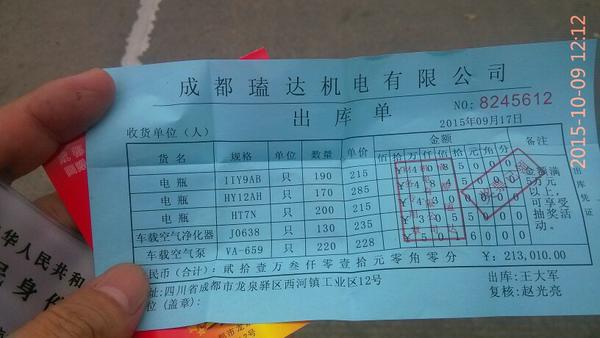 成都瑧达机电有限公司
出库单
NO: 8245612
收货单位（人）
2015年09月17日
货名 规格 单位 数量 单价 金额 备注
佰 拾 万 仟 佰 拾 元 角 分
电瓶 IIY9AB 只 190 215
电瓶 HY12AH 只 170 285
电瓶 HT7N 只 200 215
车载空气净化器 J0638 只 130 235
车载空气泵 VA-659 只 220 228
金额满5万元以上，可享受抽奖活动。
出库凭证
民币（合计）：贰拾壹万叁仟零壹拾元零角零分 ¥: 213,010.00
址:四川省成都市龙泉驿区西河镇工业区12号
出库：王大军
位(盖章)：
复核：赵光亮
2015-10-09 12:12
华人民共和
民身份